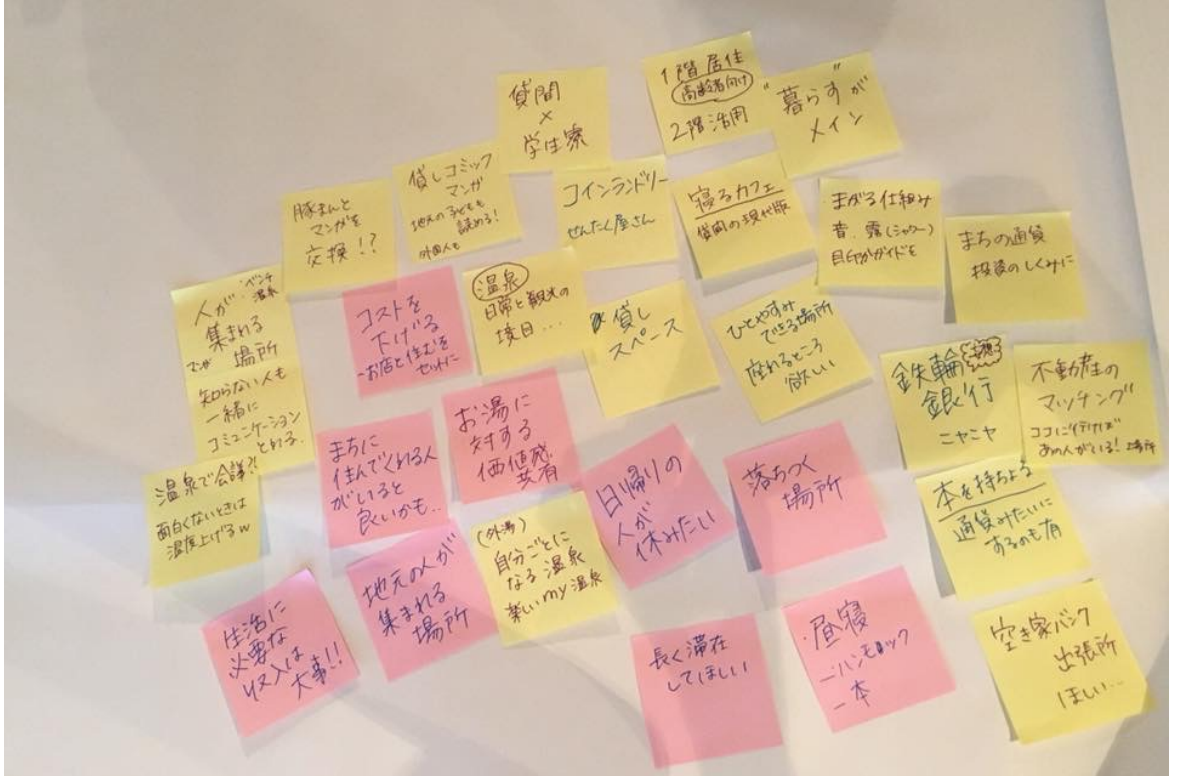 貸間
×
学生寮
1階居住
高齢者向け
2階活用
"暮らす"が
メイン
貸しコミック
マンガ
地元の子どもも
読める!
外国人も
コインランドリー
せんたく屋さん
寝るカフェ
貸間の現代版
まがる仕組み
音、霧(シャワー)
目印がガイドを
まちの通貨
投資のしくみに
豚まんと
マンガを
交換!?
人が・ベンチ
温泉
集まれる
マンガ 場所
コストを
下げる
-お店と住むを
セットに
温泉
日常と観光の
境目...
貸し
スペース
ひとやすみ
できる場所
座れるところ
欲しい
鉄輪
銀行
ニヤニヤ
不動産の
マッチング
ココに行けば
あの人がいる!場所
知らない人も
一緒に
コミュニケーション
とれる。
まちに
住んでくれる人
がいると
良いかも..
お湯に
対する
価値感
共有
日帰りの
人が
休みたい
落ちつく
場所
本を持ちよる
通貨みたいに
するのも有
温泉で会議?!
面白くないときは
温度上げるw
地元の人が
集まれる
場所
(外湯)
自分ごとに
なる温泉
楽しいmy温泉
生活に
必要な
収入は
大事!!
長く滞在
してほしい
・昼寝
-ハンモック
-本
空き家バンク
出張所
ほしい...